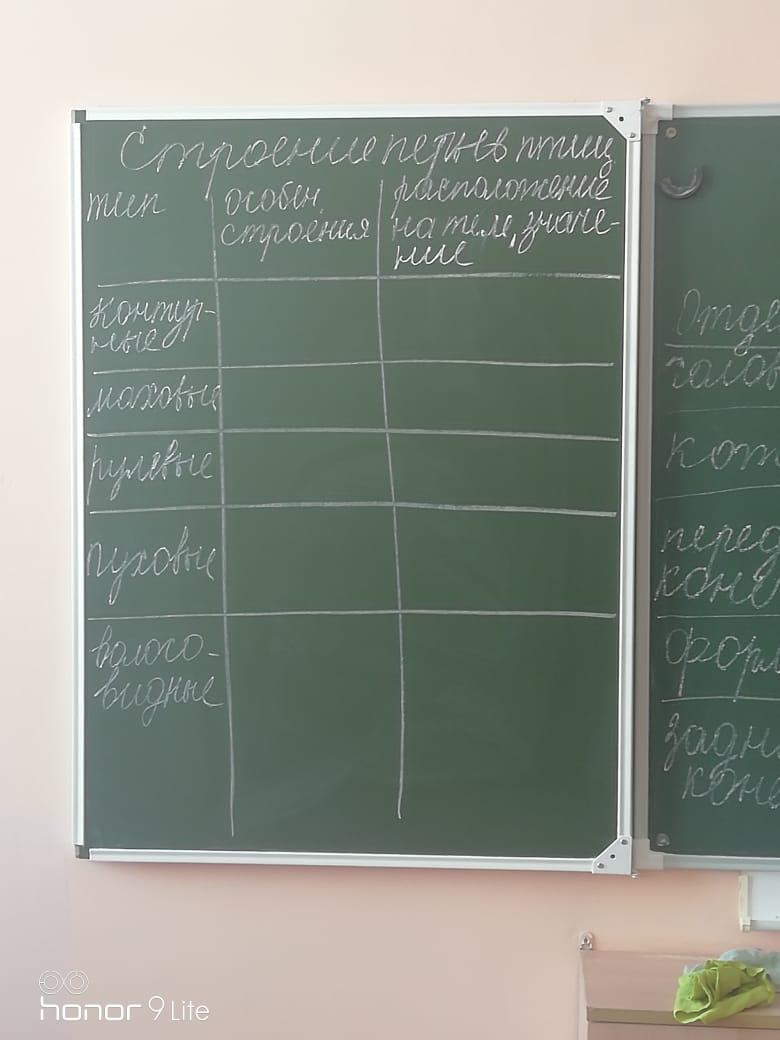 Строение перьев птиц
тип
особен.
строения
расположение
на теле, значе-
ние
контур-
ные
маховые
рулевые
пуховые
волосо-
видные
Отде
голов
кон
перед
коне
форм
задн
коне
honor 9 Lite